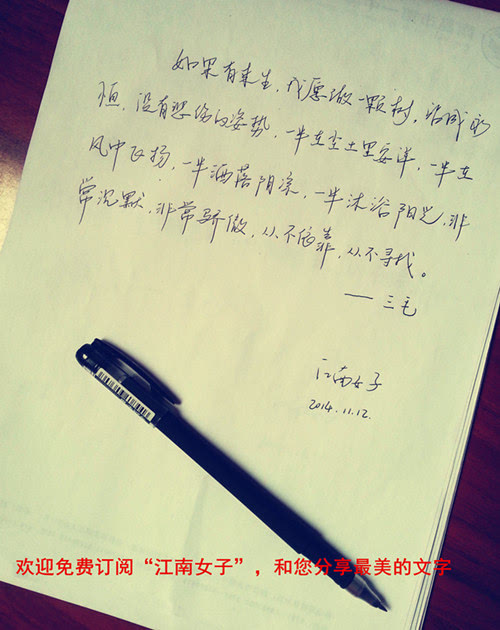 如果有来生，我愿做一颗树，站成永
恒，没有悲伤的姿势，一半在尘土里安详，一半在
风中飞扬，一半洒落阴凉，一半沐浴阳光，非
常沉默，非常骄傲，从不依靠，从不寻找。
——三毛
江南女子
2014.11.12.
欢迎免费订阅“江南女子”，和您分享最美的文字